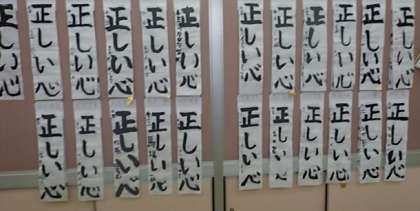 正しい心
正しい心
正しい心
正しい心
正しい心
正しい心
正しい心
正しい心
正しい心
正しい心
正しい心
正しい心
正しい心
正しい心
正しい心
正しい心
正しい心
正しい心
正しい心
正しい心
正しい心
正しい心
正しい心